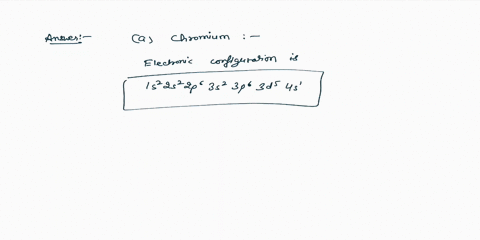 Answer:- (a) Chromium :-
Electronic configuration is
1s² 2s² 2p⁶ 3s² 3p⁶ 3d⁵ 4s¹